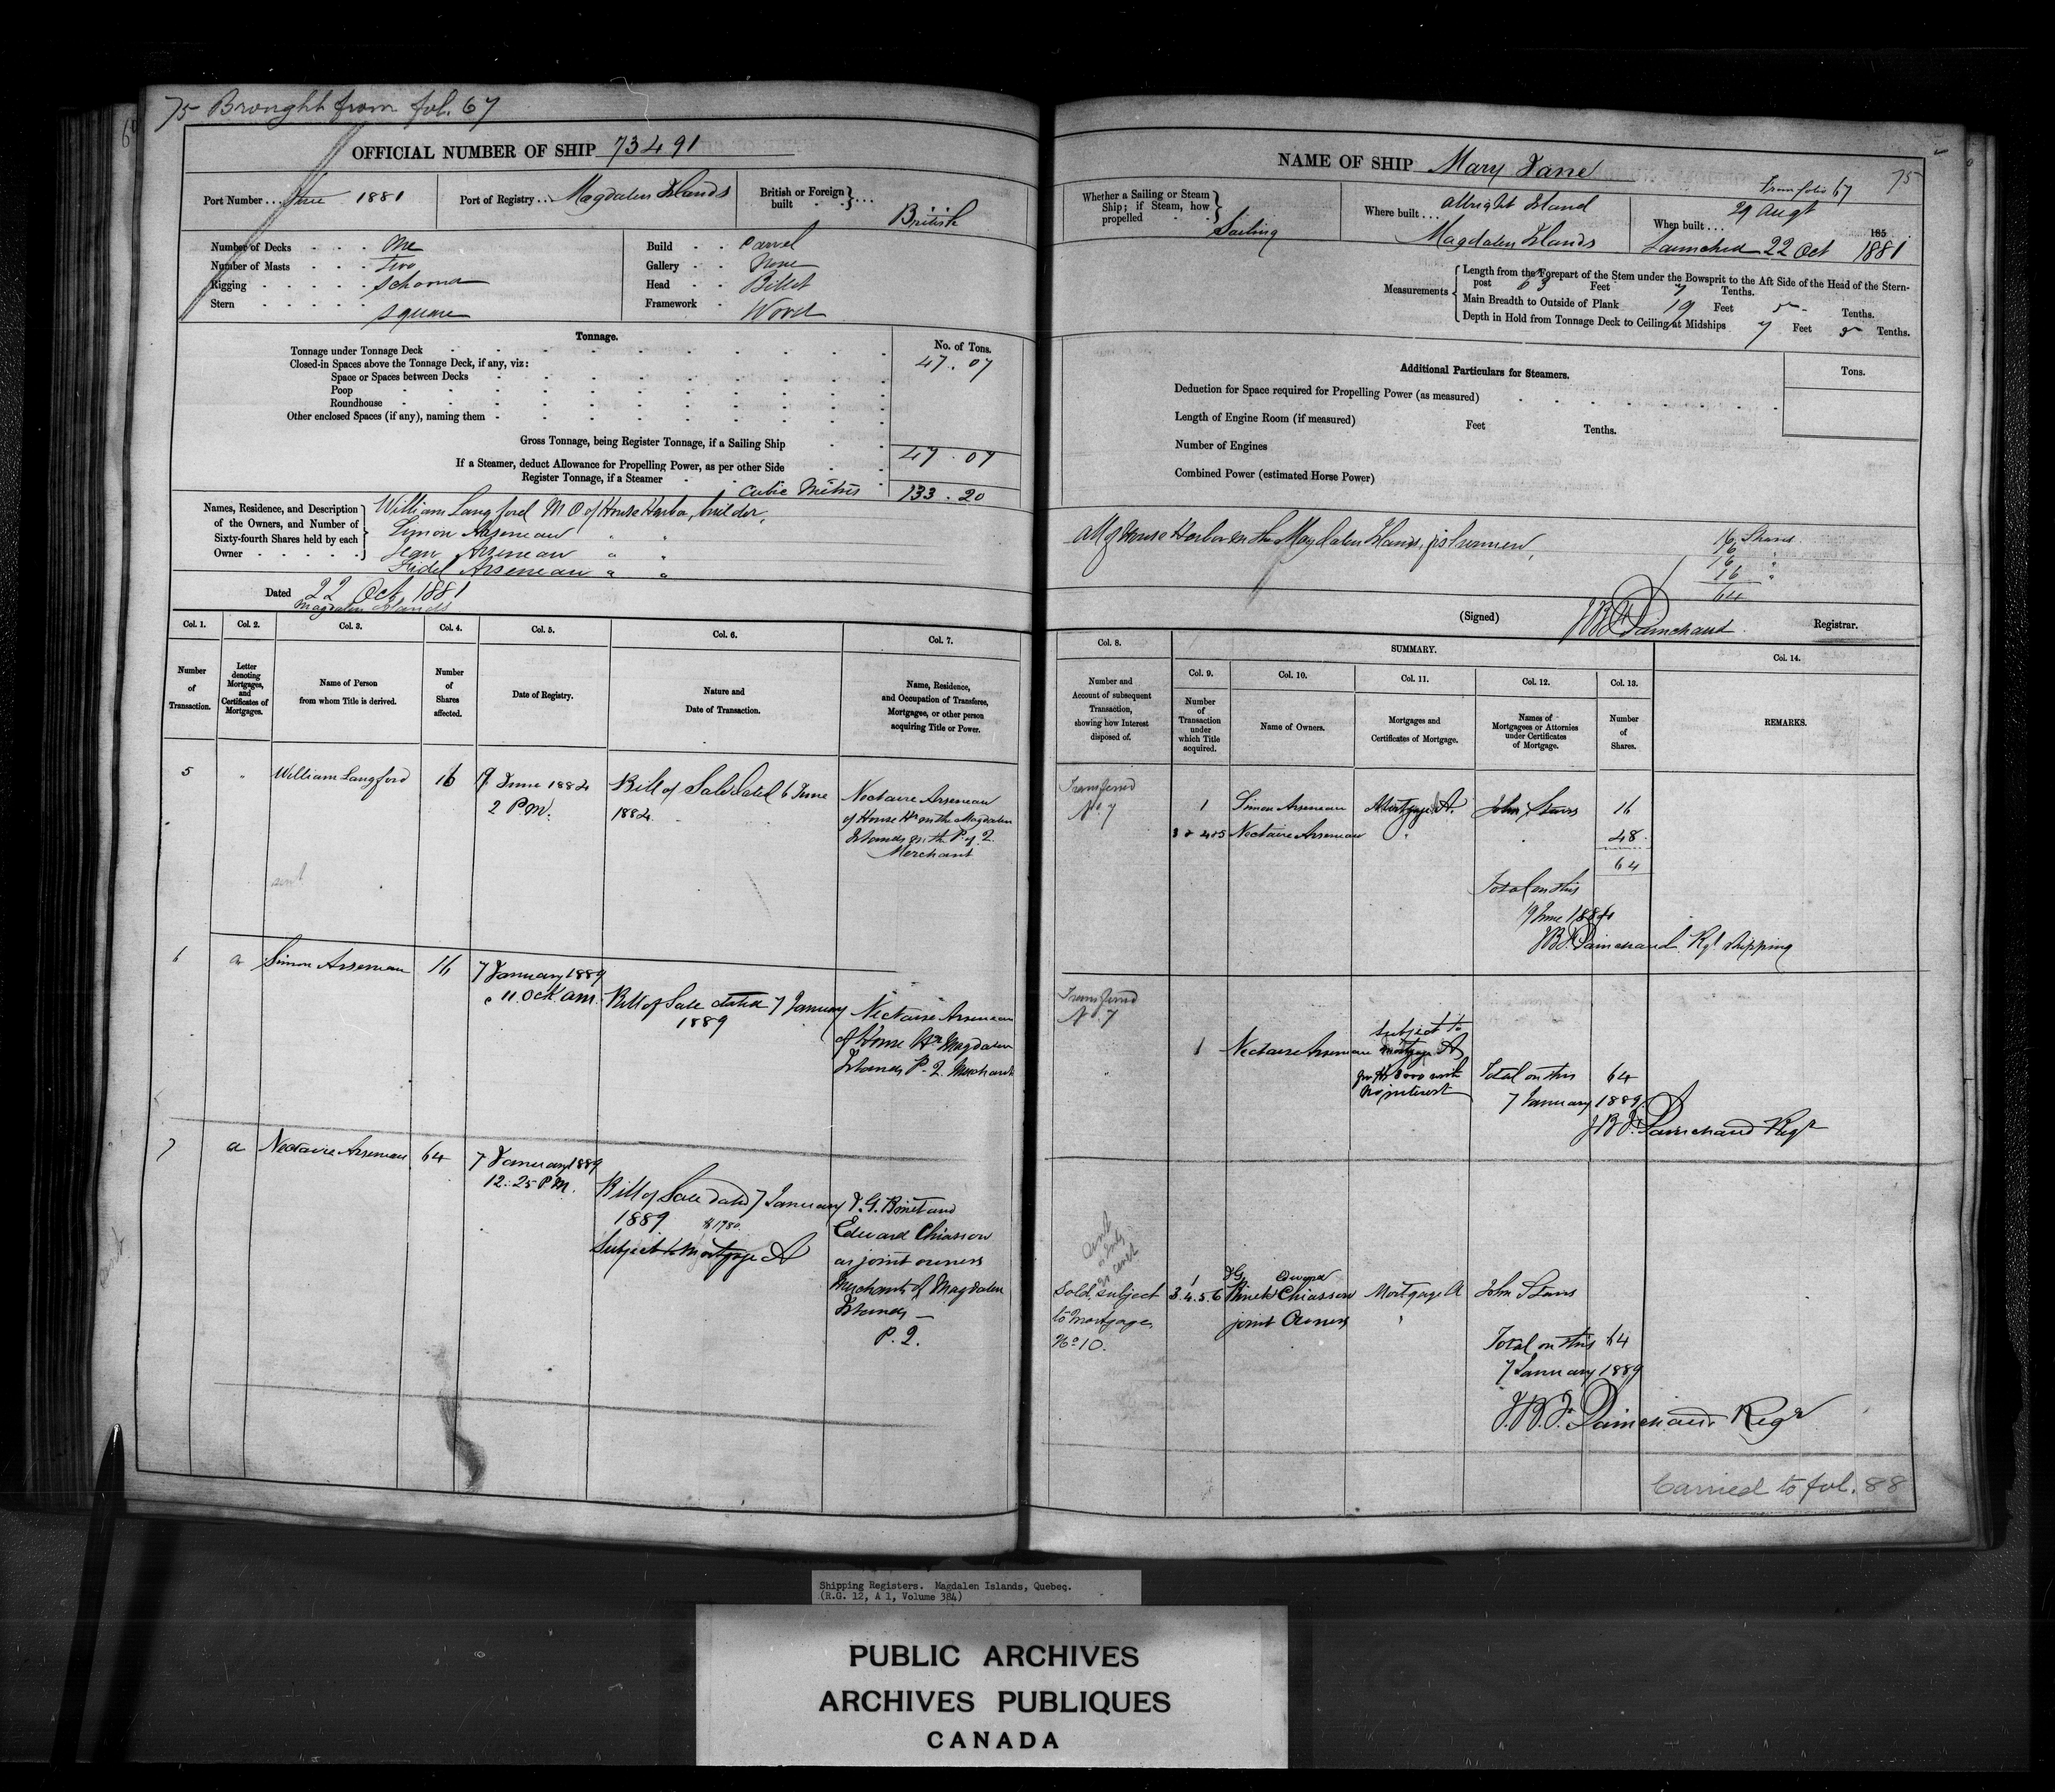 75 Brought from fol. 67
OFFICIAL NUMBER OF SHIP 73491
Port Number . . . 1881
Port of Registry . . . Magdalen Islands
British or Foreign built . . . British
Number of Decks . . . One
Number of Masts . . . Two
Rigging . . . . . Schooner
Stern . . . . . Square
Build . . Carvel
Gallery . . None
Head . . Billet
Framework . Wood
Tonnage.
No. of Tons.
Tonnage under Tonnage Deck 47.07
Closed-in Spaces above the Tonnage Deck, if any, viz:
Space or Spaces between Decks
Poop
Roundhouse
Other enclosed Spaces (if any), naming them
Gross Tonnage, being Register Tonnage, if a Sailing Ship 47.07
If a Steamer, deduct Allowance for Propelling Power, as per other Side
Register Tonnage, if a Steamer
Cubic Mètres 133.20
Names, Residence, and Description of the Owners, and Number of Sixty-fourth Shares held by each Owner
William Langford M O of House Harbor, builder,
Simon Arseneau " "
Jean Arseneau " "
Fidel Arseneau " "
Dated 22 Oct 1881
Magdalen Islands
Col. 1. Col. 2. Col. 3. Col. 4. Col. 5. Col. 6. Col. 7.
Number of Transaction.
Letter denoting Mortgages, and Certificates of Mortgages.
Name of Person from whom Title is derived.
Number of Shares affected.
Date of Registry.
Nature and Date of Transaction.
Name, Residence, and Occupation of Transferee, Mortgagee, or other person acquiring Title or Power.
5 " William Langford 16
19 June 1884
2 P.M.
Bill of Sale dated 6 June
1884
Nectaire Arseneau
of House Hr on the Magdalen
Islands in the P. of Q.
Merchant
6 a Simon Arseneau 16
7 January 1889
11. Ock am.
Bill of Sale dated 7 January
1889
Nectaire Arseneau
of House Hr Magdalen
Islands P. Q. Merchant
7 a Nectaire Arseneau 64
7 January 1889
12.25 P.M.
Bill of Sale dated 7 January
1889 $1780.
Subject to Mortgage A
J. G. Brinet and
Edward Chiasson
as joint owners
Merchants of Magdalen
Islands —
P. Q.
NAME OF SHIP Mary Jane
From folio 67
75
Whether a Sailing or Steam Ship; if Steam, how propelled . . Sailing
Where built . . . Allright Island
Magdalen Islands
When built . . . 29 Augt
Launched 22 Oct 1881
185
Measurements
Length from the Forepart of the Stem under the Bowsprit to the Aft Side of the Head of the Stern-
post 63 Feet 7 Tenths.
Main Breadth to Outside of Plank 19 Feet 5 Tenths.
Depth in Hold from Tonnage Deck to Ceiling at Midships 7 Feet 5 Tenths.
Additional Particulars for Steamers.
Tons.
Deduction for Space required for Propelling Power (as measured)
Length of Engine Room (if measured) Feet Tenths.
Number of Engines
Combined Power (estimated Horse Power)
All of House Harbor on the Magdalen Islands, fishermen,
16 Shares
16 "
16 "
16 "
64
(Signed) J B F Painchaud Registrar.
Col. 8.
SUMMARY.
Col. 9. Col. 10. Col. 11. Col. 12. Col. 13. Col. 14.
Number and Account of subsequent Transaction, showing how Interest disposed of.
Number of Transaction under which Title acquired.
Name of Owners.
Mortgages and Certificates of Mortgage.
Names of Mortgagees or Attornies under Certificates of Mortgage.
Number of Shares.
REMARKS.
Transferred
No 7
1 Simon Arseneau Mortgage A. John Stairs 16
3 & 4 & 5 Nectaire Arseneau " . 48
64
Total on this
19 June 1884
J B F Painchaud Rgr Shipping
Transferred
No 7
1 Nectaire Arseneau
subject to
mortgage A
no interest
Total on this 64
7 January 1889
J B F. Painchaud Regr
Sold subject
to Mortgage
No 10.
1
3.4.5.6
J G Edward
Brinet Chiasson
joint Owners
Mortgage A John Stairs
Total on this 64
7 January 1889
J. B. F. Painchaud Regr
Carried to fol. 88
Shipping Registers. Magdalen Islands, Quebec.
(R.G. 12, A 1, Volume 384)
PUBLIC ARCHIVES
ARCHIVES PUBLIQUES
CANADA